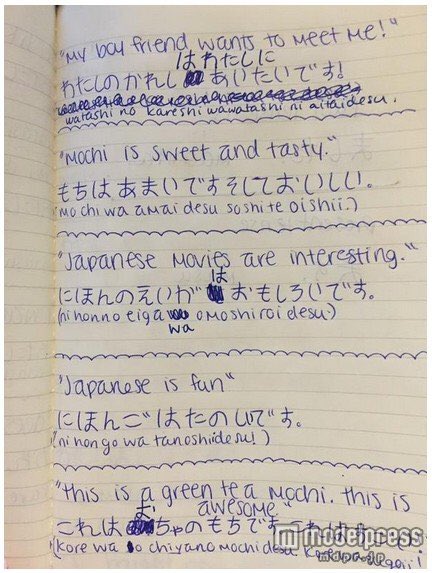 "My boy friend wants to meet me!"
はわたしに
わたしのかれし あいたいです!
watashi no kareshi wawatashi ni aitaidesu.
"Mochi is sweet and tasty."
もちは あまいです そして おいしい。
(mo chi wa amai desu soshite oishii.)
"Japanese movies are interesting."
は
にほんのえいが おもしろいです。
(nihonno eiga omoshiroi desu.)
wa
"Japanese is fun"
にほんごはたのしいです。
(ni hon go wa tanoshiidesu!)
"this is a green tea mochi. this is
お awesome"
これは ちゃのもちです これは
(kore wa o chiyano mochi desu. kore wa sugoi!
modelpress
mdpr.jp